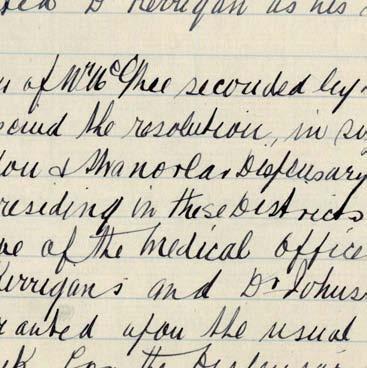 D Kerrigan as his
of Mr McGhee seconded by
the resolution, in
& Stranorlar Dispensary
residing in these Districts
of the Medical Office
Kerrigans and Dr Johns
ranted upon the usual
the Dispensar